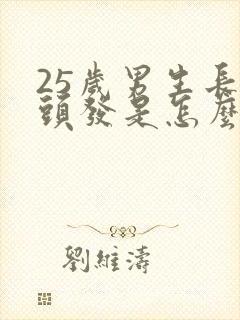 25歲男生長
頭發是怎麼
劉維濤